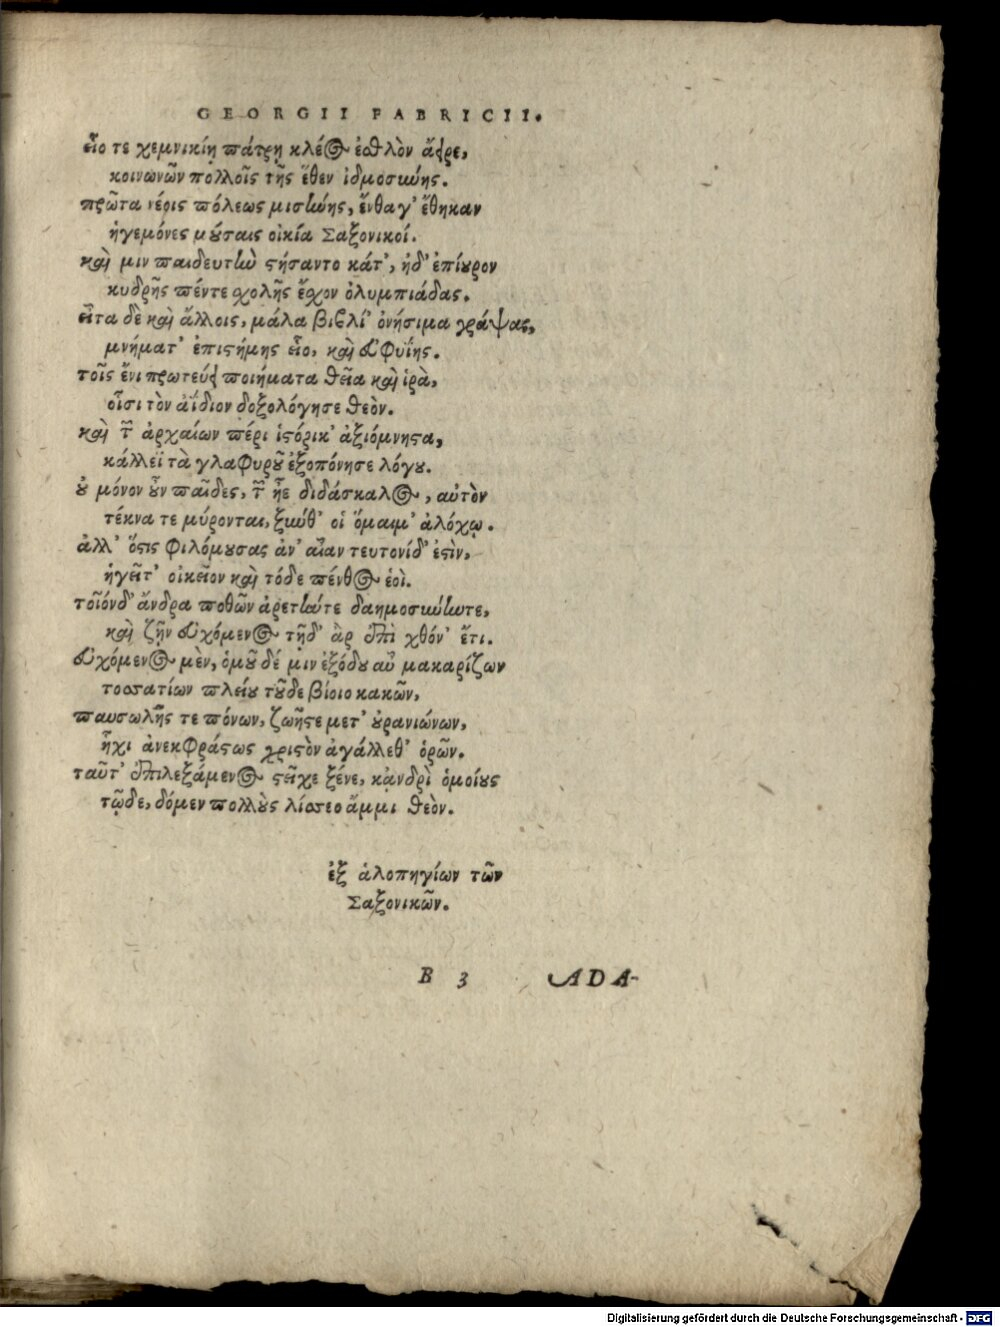 GEORGII FABRICII.
εἷο τε χεμνικίῃ πάτρῃ κλέος ἐσθλὸν ἄειρε,
κοινωνῶν πολλοῖς τῆς ἕθεν ἰδμοσύνης.
πρῶτα νέρις πόλεως μισίνης, ἔνθα γ' ἔθηκαν
ἡγεμόνες μούσαις οἰκία Σαξονικοί.
καὶ μιν παιδευτὴν στήσαντο κάτ', ἠδ' ἐπίουρον
κυδρῆς πέντε σχολῆς ἔσχον ὀλυμπιάδας.
εἶτα δὲ καὶ ἄλλοις, μάλα βιβλί' ὀνήσιμα γράψας,
μνήματ' ἐπιστήμης εἷο, καὶ εὐφυΐης.
τοῖς ἔνι πρωτεύει ποιήματα θεῖα καὶ ἱρὰ,
οἷσι τὸν ἀΐδιον δοξολόγησε θεὸν.
καὶ τῶν ἀρχαίων πέρι ἱστόρικ' ἀξιόμνηστα,
κάλλεϊ τὰ γλαφυροῦ ἐξοπόνησε λόγου.
οὐ μόνον οὖν παῖδες, τῶν ἦε διδάσκαλος, αὐτὸν
τέκνα τε μύρονται, ξύνθ' οἱ ὅμαιμ' ἀλόχῳ.
ἀλλ' ὅστις φιλόμουσας ἀν' αἶαν τευτονίδ' ἐστὶν,
ἡγεῖτ' οἰκεῖον καὶ τόδε πένθος ἑοῖ.
τοῖόνδ' ἄνδρα ποθῶν ἀρετήν τε δαημοσύνην τε,
καὶ ζῇν εὐχόμενος τῇδ' ἂρ ἐπὶ χθόν' ἔτι.
εὐχόμενος μὲν, ὁμοῦ δέ μιν ἐξόδου αὖ μακαρίζων
τοσσατίων πλείου τοῦδε βίοιο κακῶν,
παυσωλῆς τε πόνων, ζωῆς τε μετ' οὐρανιώνων,
ἧχι ἀνεκφράστως χριστὸν ἀγάλλεθ' ὁρῶν.
ταῦτ' ἐπιλεξάμενος στεῖχε ξένε, κᾀνδρὶ ὁμοίους
τῷδε, δόμεν πολλοὺς λίσσεο ἄμμι θεὸν.
ἐξ ἁλοπηγίων τῶν
Σαξονικῶν.
B 3 ADA-
Digitalisierung gefördert durch die Deutsche Forschungsgemeinschaft - DFG